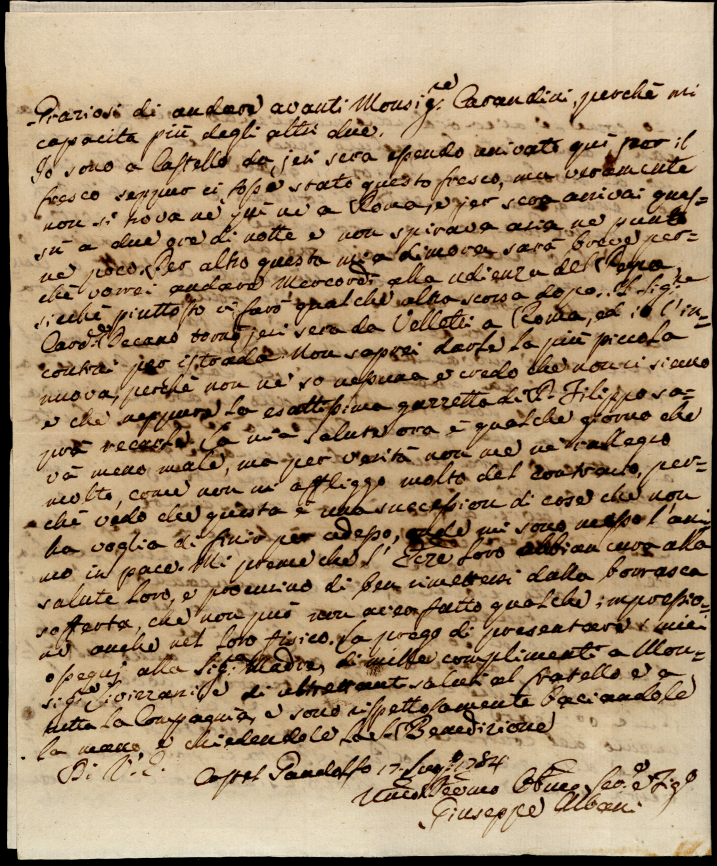 Graziosi di andare avanti Monsig.re Carandini, perchè mi
capacita più degli altri due.
Io sono a Castello da jeri sera essendo arivato qui por il
fresco seppur ci fosse stato questo fresco, ma veramente
non si trova nè quì nè a Roma, e jer sera arrivai ques=
sù a due ore di notte e non spirava aria nè punto
nè poco. Per altro questa mia dimora sarà breve per=
chè vorrei andare Mercordì alla udienza del Papa
sicchè piuttosto vi farò qualche altra scorsa dopo. Il Sig.re
Card.e Decano tornò jeri sera da Velletri a Roma, ed io l'in=
contrai per istrada. Non saprei darle la più piccola
nuova, perchè non ne so nessuna e credo che non ci sieno
e che neppure la esattissima gazzetta di P. Filippo sa=
prà recarle. La mia salute ora è qualche giorno che
và meno male, ma per verità non me ne rallegro
molto, come non mi affliggo molto del contrario, per=
chè vedo che questa è una succession di cose che non
ha voglia di finir per adesso, onde mi sono messo l'ani
mo in pace. Mi preme che l'Ecze Loro abbian cura alla
salute loro, e procurino di ben rimettersi dalla borrasca
sofferta, che non può non aver fatto qualche impressio=
ne anche nel loro fisico. La prego di presentare i miei
ossequj alla Sig.ra Madre, di mille complimenti a Mon=
sig.re Civizzani e di altrettanti saluti al fratello e a
tutta la Compagnia, e sono rispettosamente baciandole
la mano e chiedendole la S. Benedizione
Di V.E.
Castel Gandolfo 17. Lug.o 1784
Umo Devmo Obbmo Ser.e e Fig.o
Giuseppe Albani